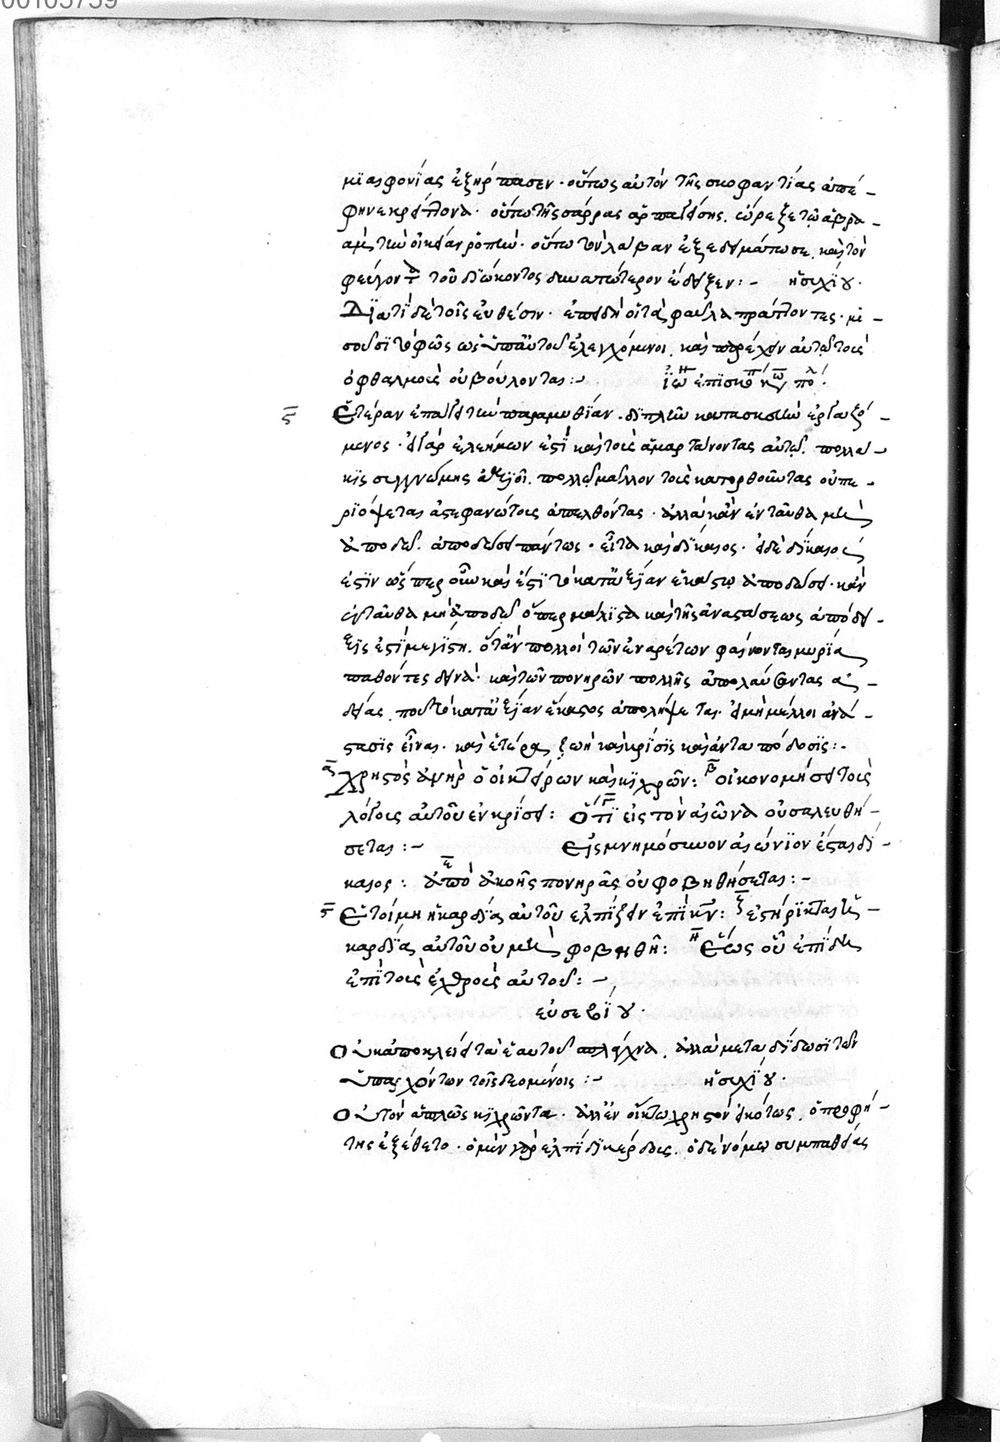 00105759
μιαιφονίας ἐξήρπασεν · οὕτως αὐτὸν τῆς συκοφαντίας ἀπέ-
φηνε κρείττονα · οὕτω τῆς σάρρας ἁρπαγείσης, ὤρεξε τῷ ἀβρα-
ὰμ τὴν οἰκείαν ῥοπήν · οὕτω τὸν λάβαν ἐξεδυσώπησε, καὶ τὸν
φεύγοντα τοῦ διώκοντος δυνατώτερον ἔδειξεν : - ἡσυχίου ·
Διατί δὲ τοῖς εὐθέσιν · ἐπειδὴ οἱ τὰ φαῦλα πράττοντες · μι-
σοῦσι τὸ φῶς ὡς ὑπ' αὐτοῦ ἐλεγχόμενοι, καὶ παρέχειν αὐτῷ τοὺς
ὀφθαλμοὺς οὐ βούλονται : - ἰω ἐπισκο κων πολ
ϛ Ἑτέραν ἐπάγει τὴν παραμυθίαν · διπλῆν κατασκευὴν ἐργαζό-
μενος · εἰ γὰρ ἐλεήμων ἐστὶ καὶ τοὺς ἁμαρτάνοντας αὐτῷ, πολλά-
κις συγγνώμης ἀξιοῖ, πολλῷ μᾶλλον τοὺς κατορθοῦντας οὐ πε-
ριόψεται ἀστεφανώτους ἀπελθόντας · ἀλλὰ κἂν ἐνταῦθα μὴ
ἀποδῷ, ἀποδώσει πάντως · εἶτα καὶ δίκαιος · εἰ δὲ δίκαιός
ἐστιν ὥσπερ οὖν καὶ ἔστι τὸ κατ' ἀξίαν ἑκάστῳ ἀποδώσει · κἂν
ἐνταῦθα μὴ ἀποδῷ ὅπερ μάλιστα καὶ τῆς ἀναστάσεως ἀπόδει-
ξις ἐστὶ μεγίστη, ὅταν πολλοὶ τῶν ἐναρέτων φαίνονται μυρία
παθόντες δεινά · καὶ τῶν πονηρῶν πολλῆς ἀπολαύοντας ἀ-
δείας, ποῦ τὸ κατ' ἀξίαν ἕκαστος ἀπολήψεται, εἰ μὴ μέλλοι ἀνά-
στασις εἶναι · καὶ ἑτέρα ζωὴ καὶ κρίσις καὶ ἀνταπόδοσις : -
α Χρηστὸς ἀνὴρ ὁ οἰκτείρων καὶ κιχρῶν : β οἰκονομήσει τοὺς
λόγους αὐτοῦ ἐν κρίσει : γ Ὅτι εἰς τὸν αἰῶνα οὐ σαλευθή-
σεται : - Εἰς μνημόσυνον αἰώνιον ἔσται δί-
καιος : ε ἀπὸ ἀκοῆς πονηρᾶς οὐ φοβηθήσεται : -
ϛ Ἑτοίμη ἡ καρδία αὐτοῦ ἐλπίζειν ἐπὶ κν : ζ ἐστήρικται ἡ
καρδία αὐτοῦ οὐ μὴ φοβηθῇ : η Ἕως οὗ ἐπίδῃ
ἐπὶ τοὺς ἐχθροὺς αὐτοῦ : -
εὐσεβίου ·
Οὐκ ἀποκλείει τὰ ἑαυτοῦ σπλάγχνα, ἀλλὰ μεταδίδωσι τῶν
ὑπαρχόντων τοῖς δεομένοις : - ἡσυχίου ·
Οὐ τὸν ἁπλῶς κιχρῶντα · ἀλλ' ἐν οἴκτῳ χρηστὸν εἰκότως, ὁ προφή-
της ἐξέθετο · ὁ μὲν γὰρ ἐλπίδι κέρδους, ὁ δὲ νόμῳ συμπαθείας